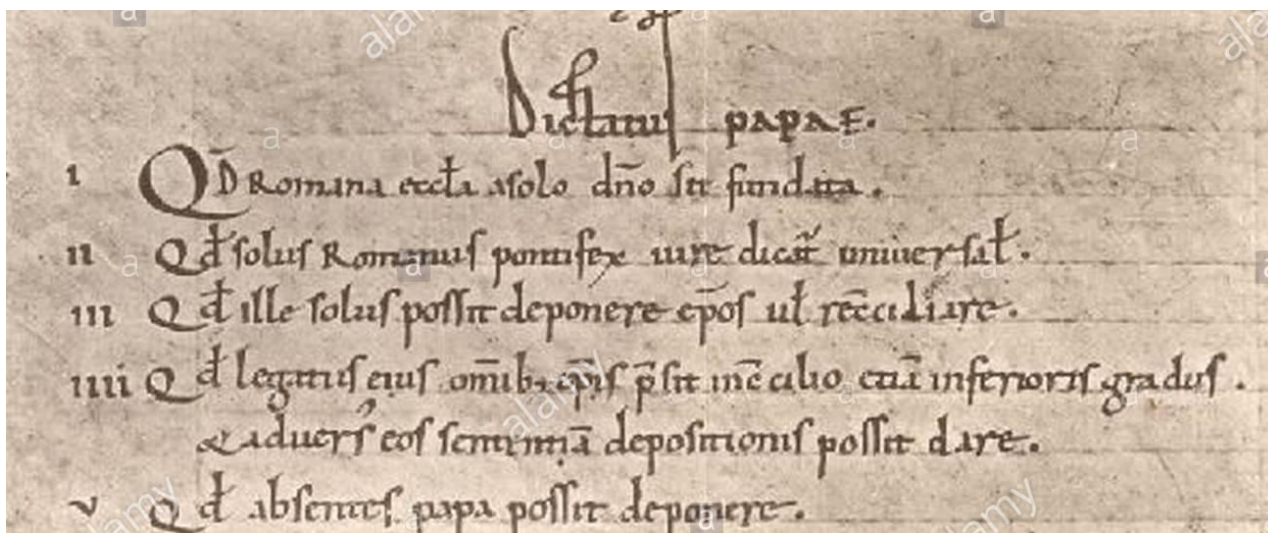 Dictatus papae.
I QD Romana eccla a solo dno sit fundata.
II Qd solus Romanus pontifex iure dicat universal.
III Qd ille solus possit deponere epos ul recciliare.
IIII Qd legatus eius omib; epis psit in cilio etia inferioris gradus.
& adversus eos sententia depositionis possit dare.
V Qd absentes papa possit deponere.